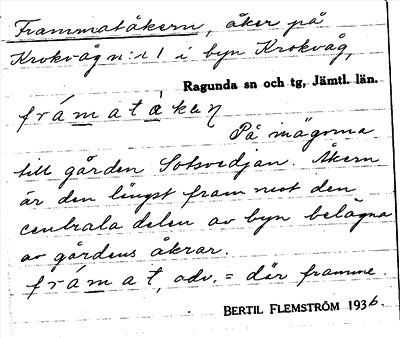 Frammatåkern, åker på
Krokvåg n:r 1 i byn Krokvåg,
Ragunda sn och tg, Jämtl. län.
frámatàkeɳ
På ingorna
till gården Sotsvedjan. Åkern
är den längst fram mot den
centrala delen av byn belägna
av gårdens åkrar.
frámat, adv. = där framme.
BERTIL FLEMSTRÖM 1936.